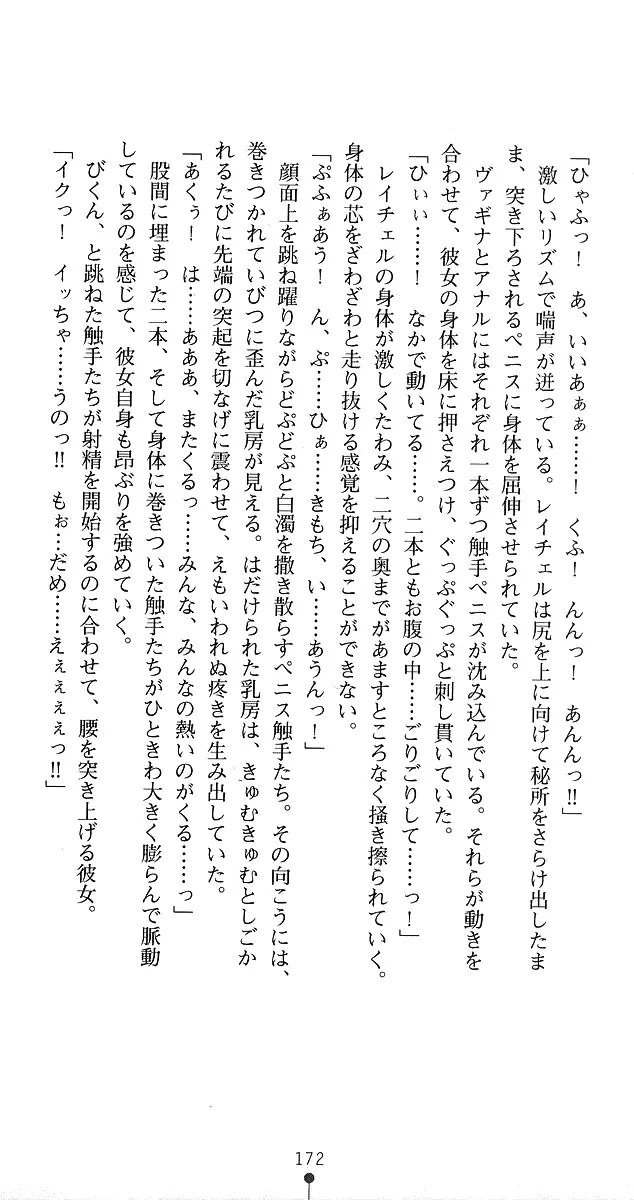 「ひゃふっ！　あ、いいあぁぁ……！　くふ！　んんっ！　あんんっ‼」
　激しいリズムで喘声が迸っている。レイチェルは尻を上に向けて秘所をさらけ出したま
ま、突き下ろされるペニスに身体を屈伸させられていた。
　ヴァギナとアナルにはそれぞれ一本ずつ触手ペニスが沈み込んでいる。それらが動きを
合わせて、彼女の身体を床に押さえつけ、ぐっぷぐっぷと刺し貫いていた。
「ひぃぃ……！　なかで動いてる……。二本ともお腹の中……ごりごりして……っ！」
　レイチェルの身体が激しくたわみ、二穴の奥までがあますところなく掻き擦られていく。
身体の芯をざわざわと走り抜ける感覚を抑えることができない。
「ぷふぁあう！　ん、ぷ……ひぁ……きもち、い……あうんっ！」
　顔面上を跳ね躍りながらどぷどぷと白濁を撒き散らすペニス触手たち。その向こうには、
巻きつかれていびつに歪んだ乳房が見える。はだけられた乳房は、きゅむきゅむとしごか
れるたびに先端の突起を切なげに震わせて、えもいわれぬ疼きを生み出していた。
「あくぅ！　は……あああ、またくるっ……みんな、みんなの熱いのがくる……っ」
　股間に埋まった二本、そして身体に巻きついた触手たちがひときわ大きく膨らんで脈動
しているのを感じて、彼女自身も昂ぶりを強めていく。
　びくん、と跳ねた触手たちが射精を開始するのに合わせて、腰を突き上げる彼女。
「イクっ！　イッちゃ……うのっ‼　もぉ…だめ……えぇぇぇっ‼」
172